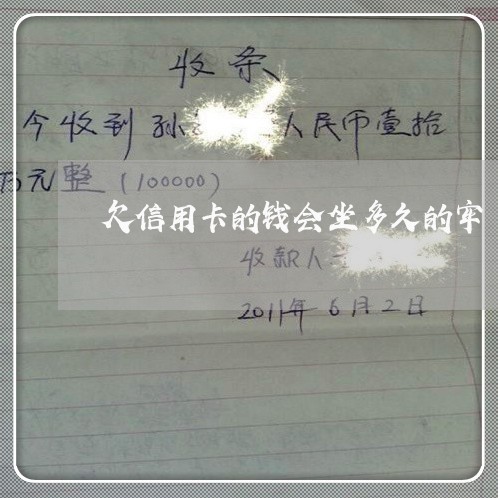 收条
今收到孙 人民币壹拾
万元整（100000）
欠信用卡的钱会坐多久的牢
收款人
2011年6月2日